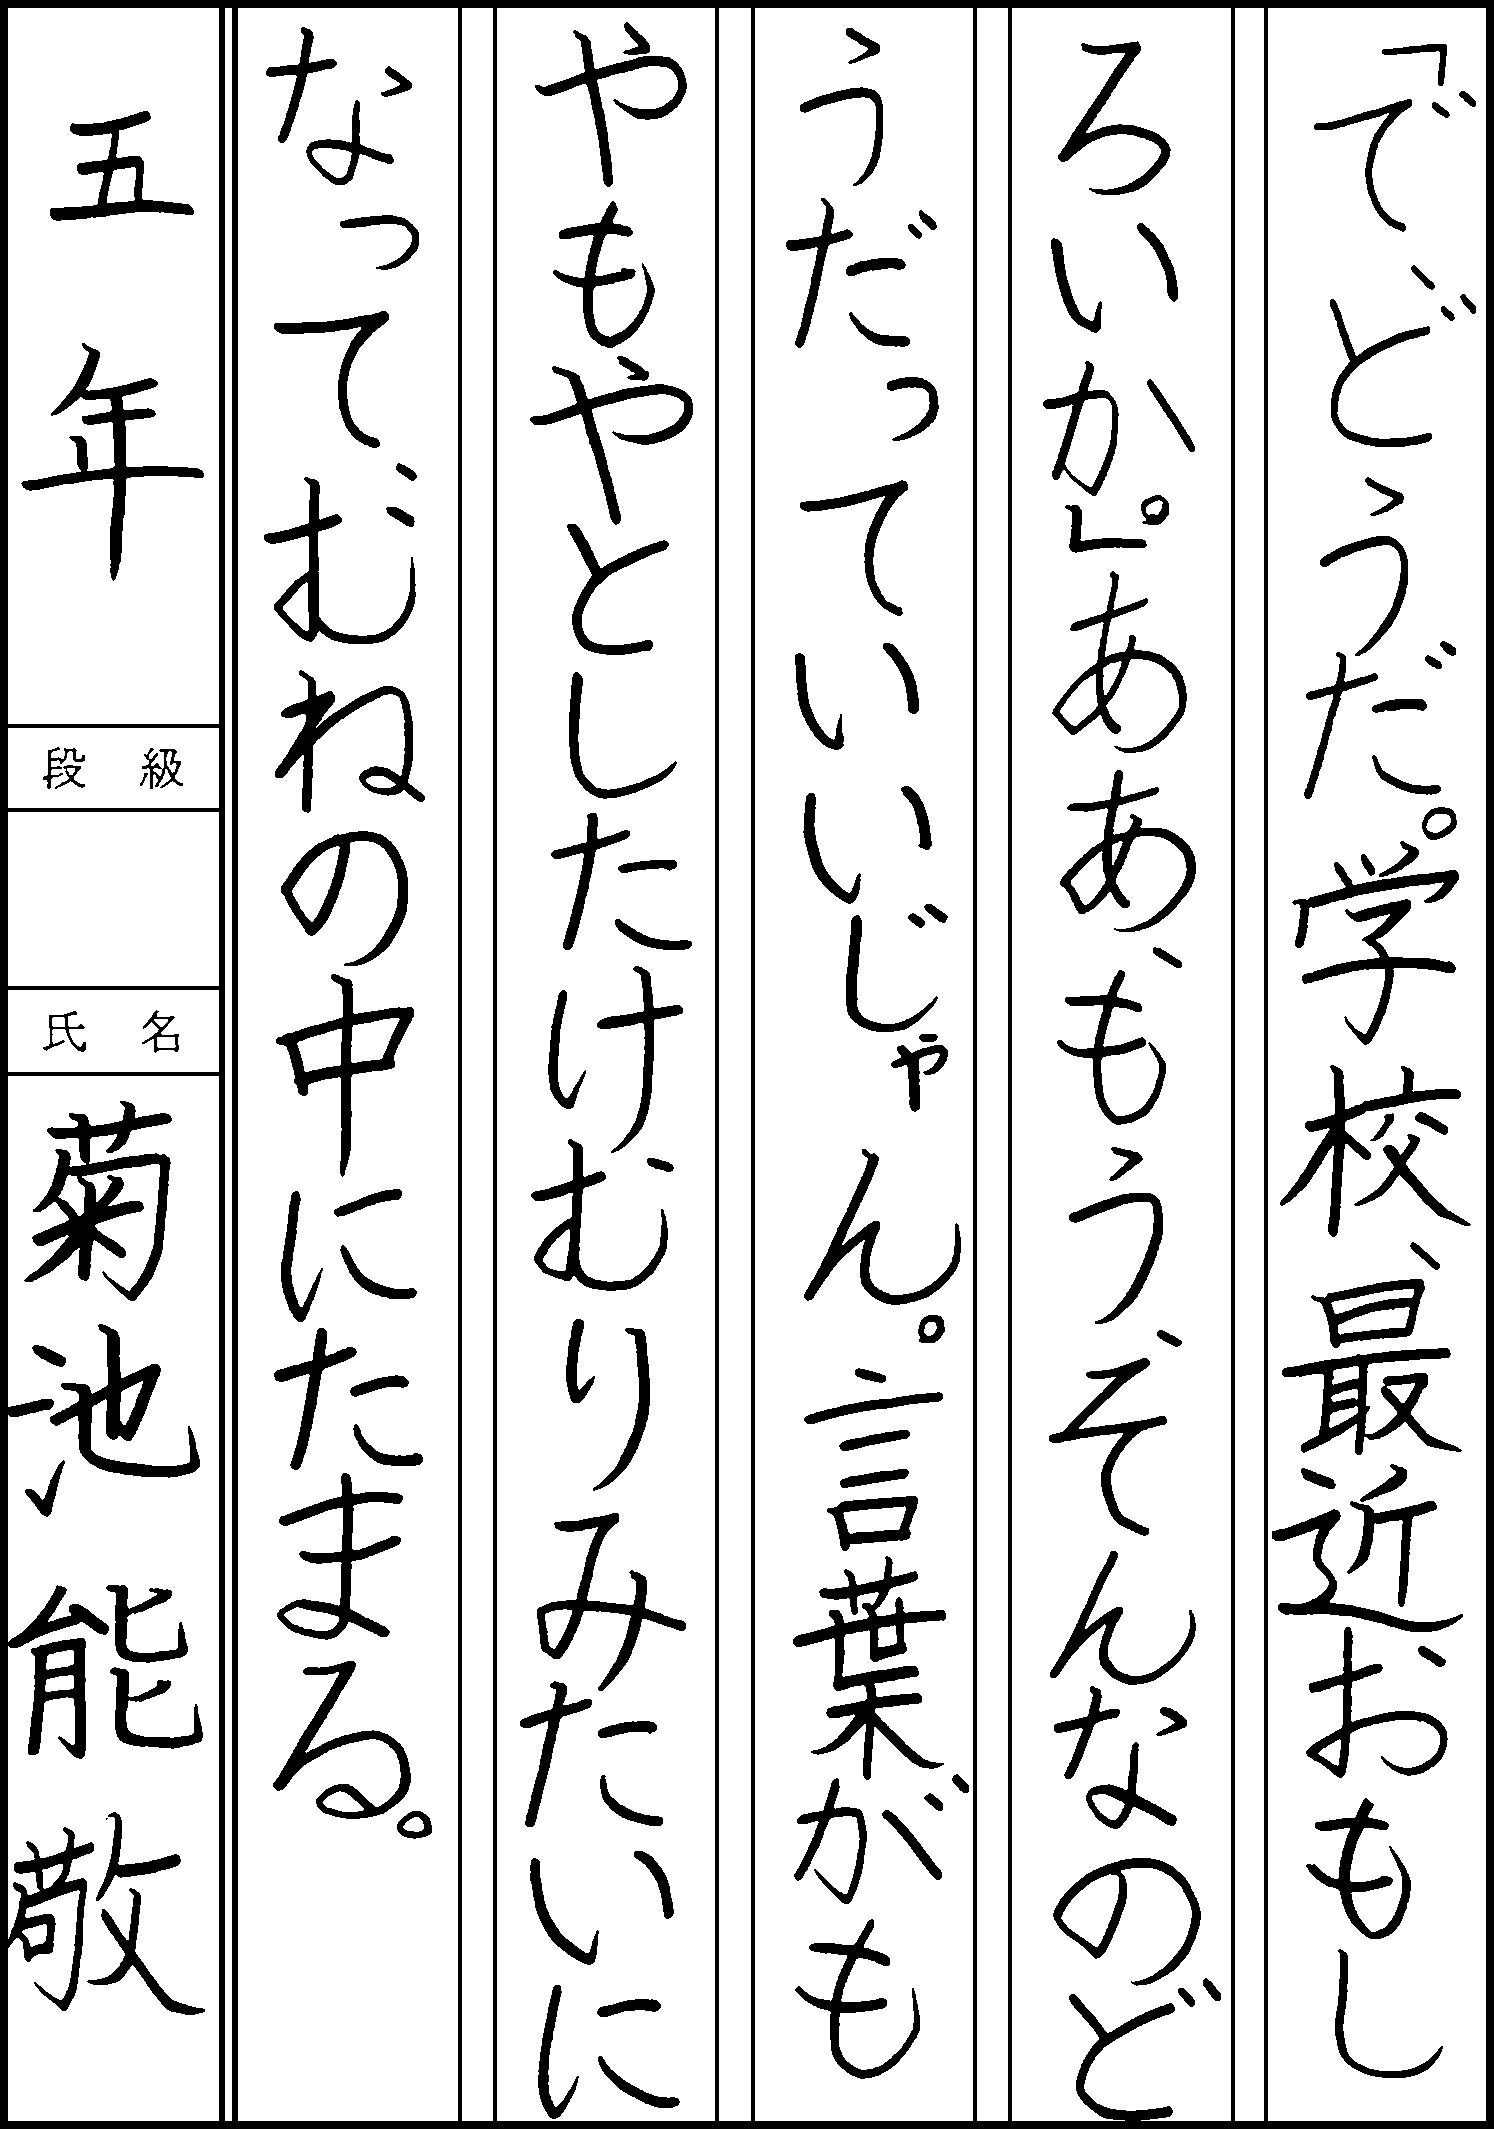 「で、どうだ。学校、最近おもし
ろいか。」ああ、もう、そんなのど
うだっていいじゃん。言葉がも
やもやとしたけむりみたいに
なって、むねの中にたまる。
五年
段級
氏名
菊池能敬